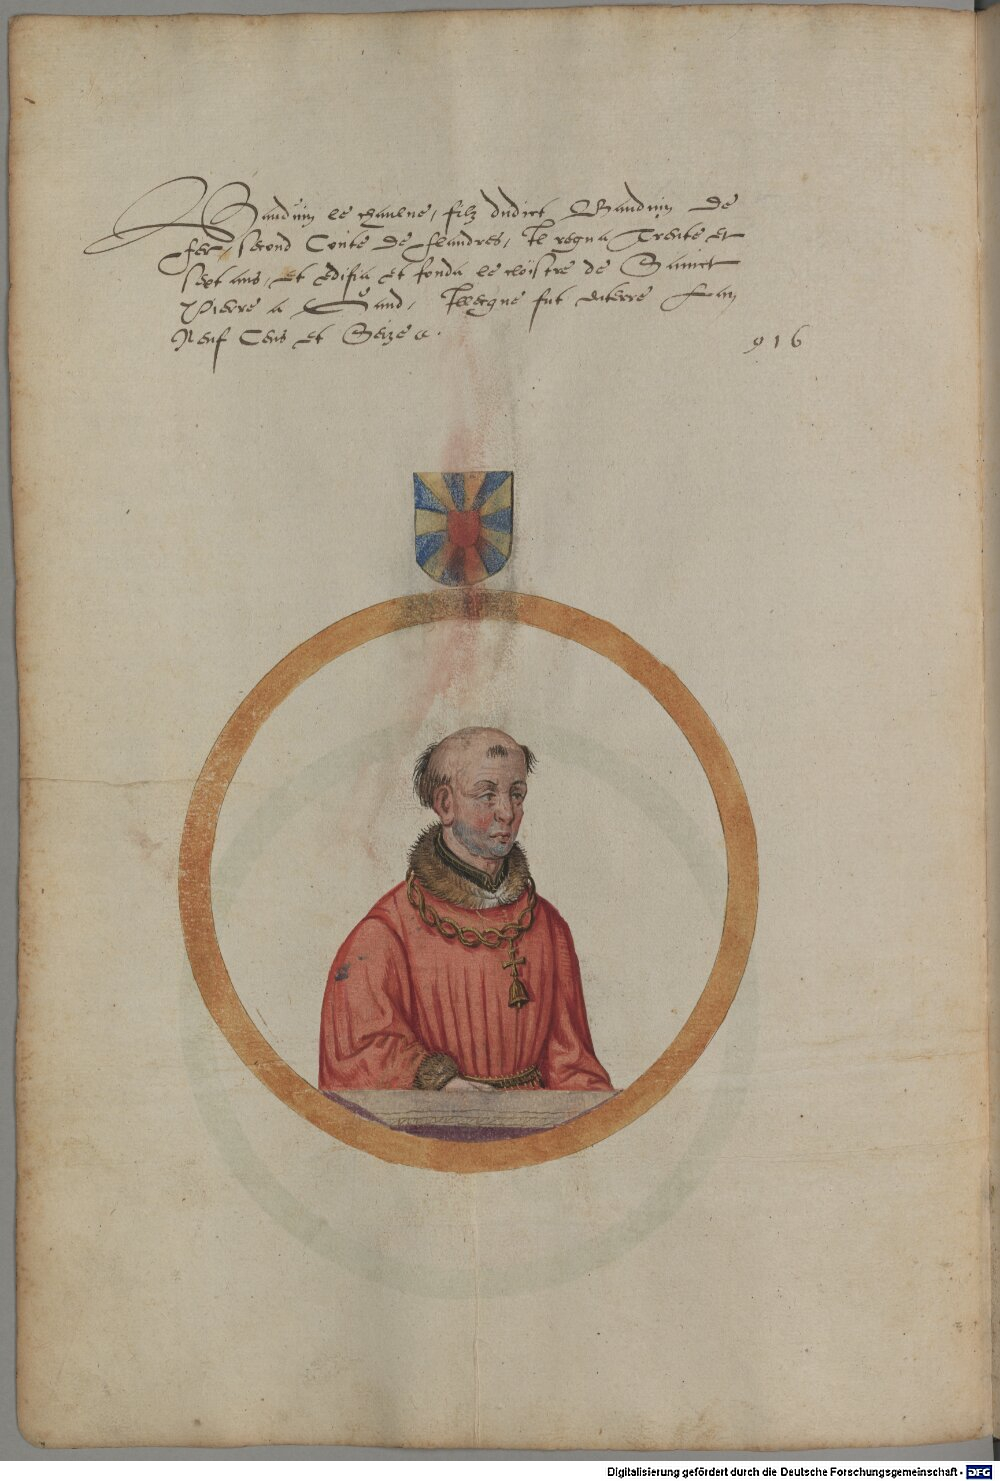 Bauduin le chaulve, filz dudict Bauduin de
fer, second Conte de flandres, Il regna Trente et
sept ans, et edifia et fonda le cloistre de Sainct
Pierre a Gand, Illecque fut enterre Lan
Neuf Cens et Seize
916
Digitalisierung gefördert durch die Deutsche Forschungsgemeinschaft - DFG